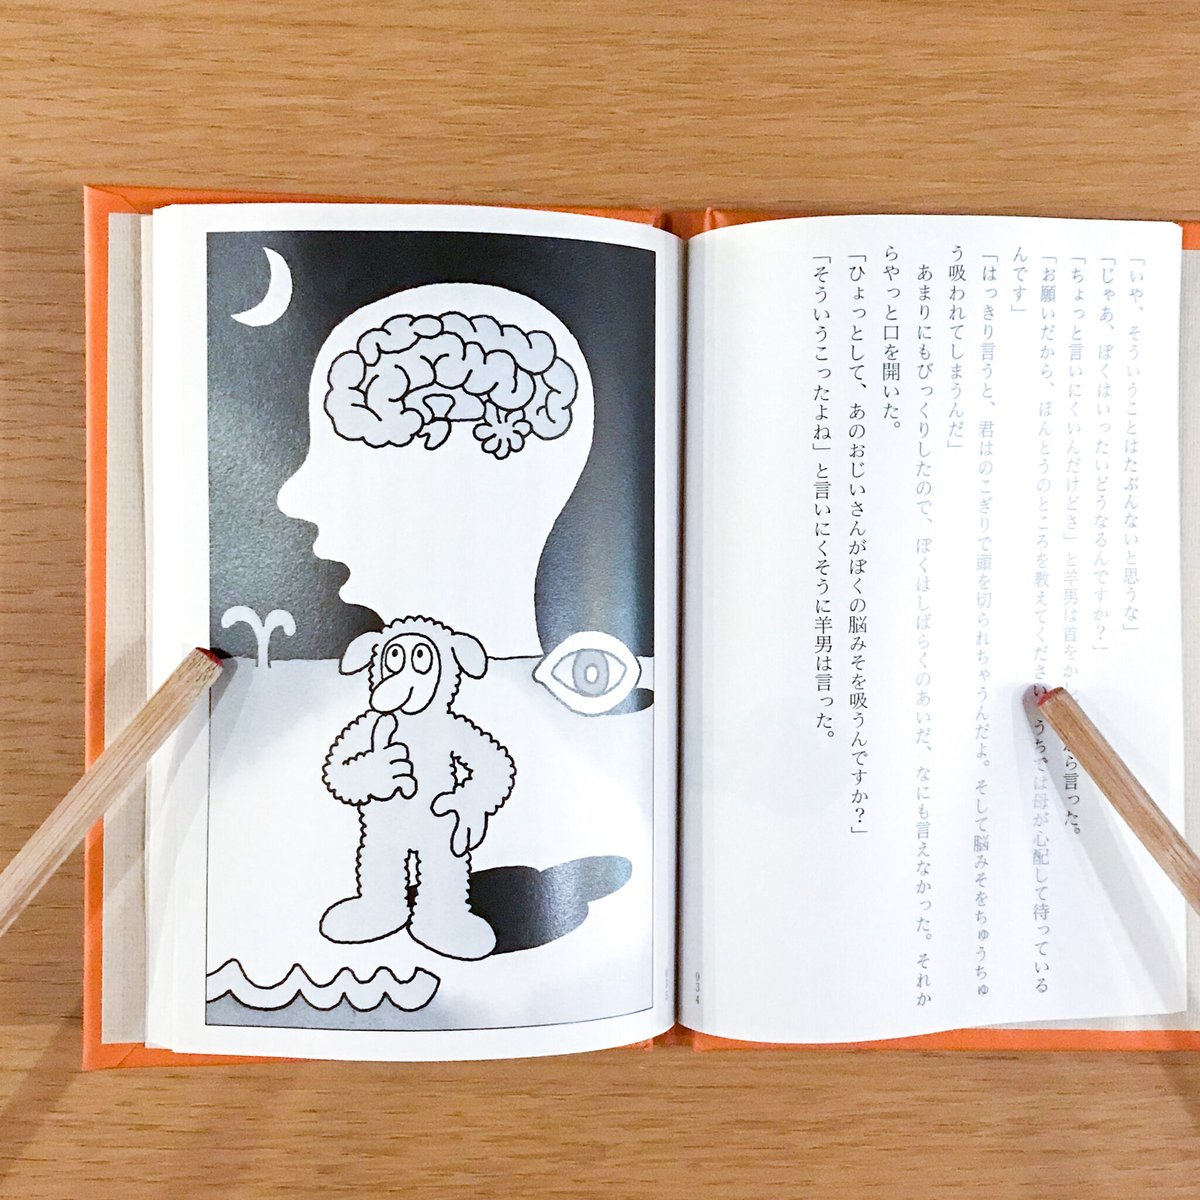 「いや、そういうことはたぶんないと思うな」
「じゃあ、ぼくはいったいどうなるんですか?」
「ちょっと言いにくいんだけどさ」と羊男は首をか ら言った。
「お願いだから、ほんとうのところを教えてください うちでは母が心配して待っている
んです」
「はっきり言うと、君はのこぎりで頭を切られちゃうんだよ。そして脳みそをちゅうちゅ
う吸われてしまうんだ」
あまりにもびっくりしたので、ぼくはしばらくのあいだ、なにも言えなかった。それか
らやっと口を開いた。
「ひょっとして、あのおじいさんがぼくの脳みそを吸うんですか?」
「そういうこったよね」と言いにくそうに羊男は言った。
034
035